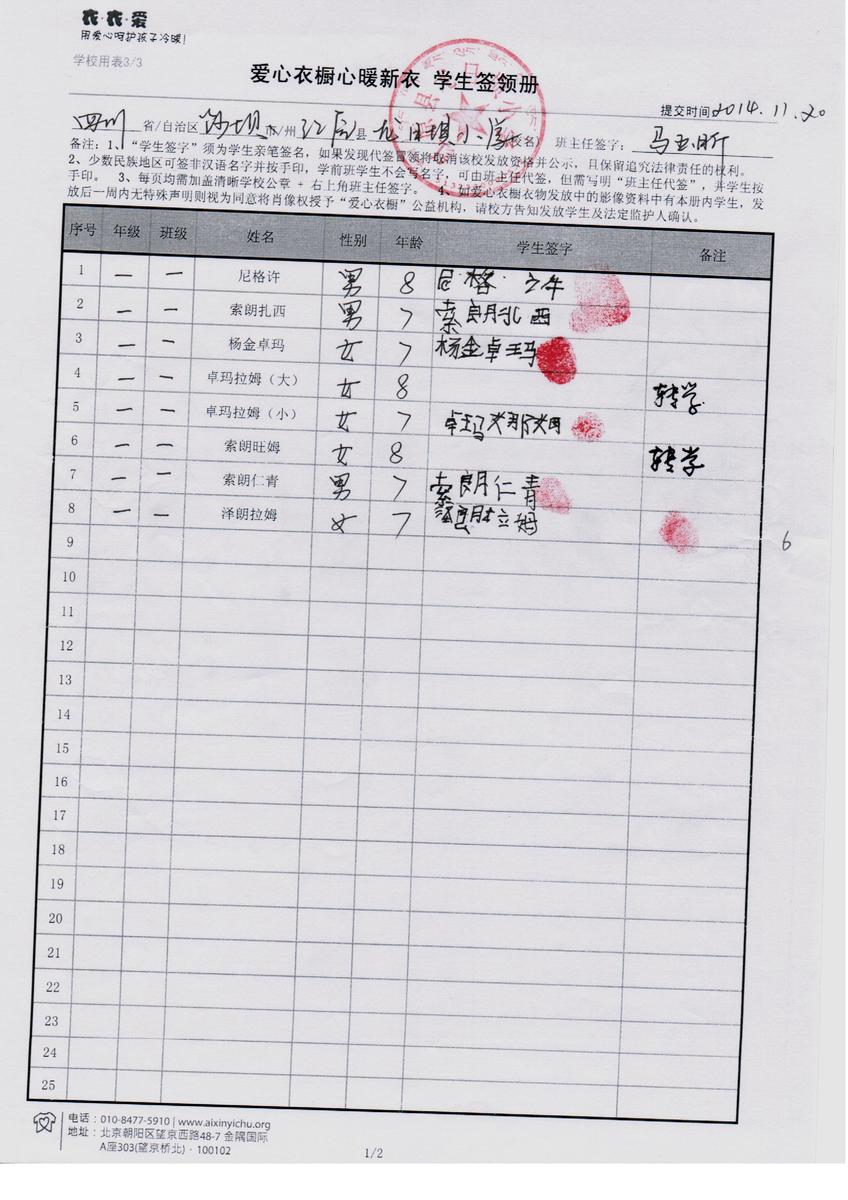 衣·衣·爱
用爱心呵护孩子冷暖!
学校用表3/3
爱心衣橱心暖新衣 学生签领册
提交时间2014.11.20
四川 省/自治区 市/州 县 小学(校名) 班主任签字:
备注:1、“学生签字”须为学生亲笔签名,如果发现代签冒领将取消该校发放资格并公示,且保留追究法律责任的权利。
2、少数民族地区可签非汉语名字并按手印,学前班学生不会写名字,可由班主任代签,但需写明“班主任代签”,并学生按
手印。 3、每页均需加盖清晰学校公章 + 右上角班主任签字。 4、如爱心衣橱衣物发放中的影像资料中有本册内学生,发
放后一周内无特殊声明则视为同意将肖像权授予“爱心衣橱”公益机构,请校方告知发放学生及法定监护人确认。
序号 年级 班级 姓名 性别 年龄 学生签字 备注
1 一 一 尼格许 男 8 尼格
2 一 一 索朗扎西 男 7 索朗扎西
3 一 一 杨金卓玛 女 7 杨金卓玛
4 一 一 卓玛拉姆(大) 女 8 转学
5 一 一 卓玛拉姆(小) 女 7 卓玛
6 一 一 索朗旺姆 女 8 转学
7 一 一 索朗仁青 男 7 索朗仁青
8 一 一 泽朗拉姆 女 7 朗拉姆
9 6
10
11
12
13
14
15
16
17
18
19
20
21
22
23
24
25
电话:010-8477-5910 | www.aixinyichu.org
地址:北京朝阳区望京西路48-7 金隅国际
A座303(望京桥北)· 100102
1/2